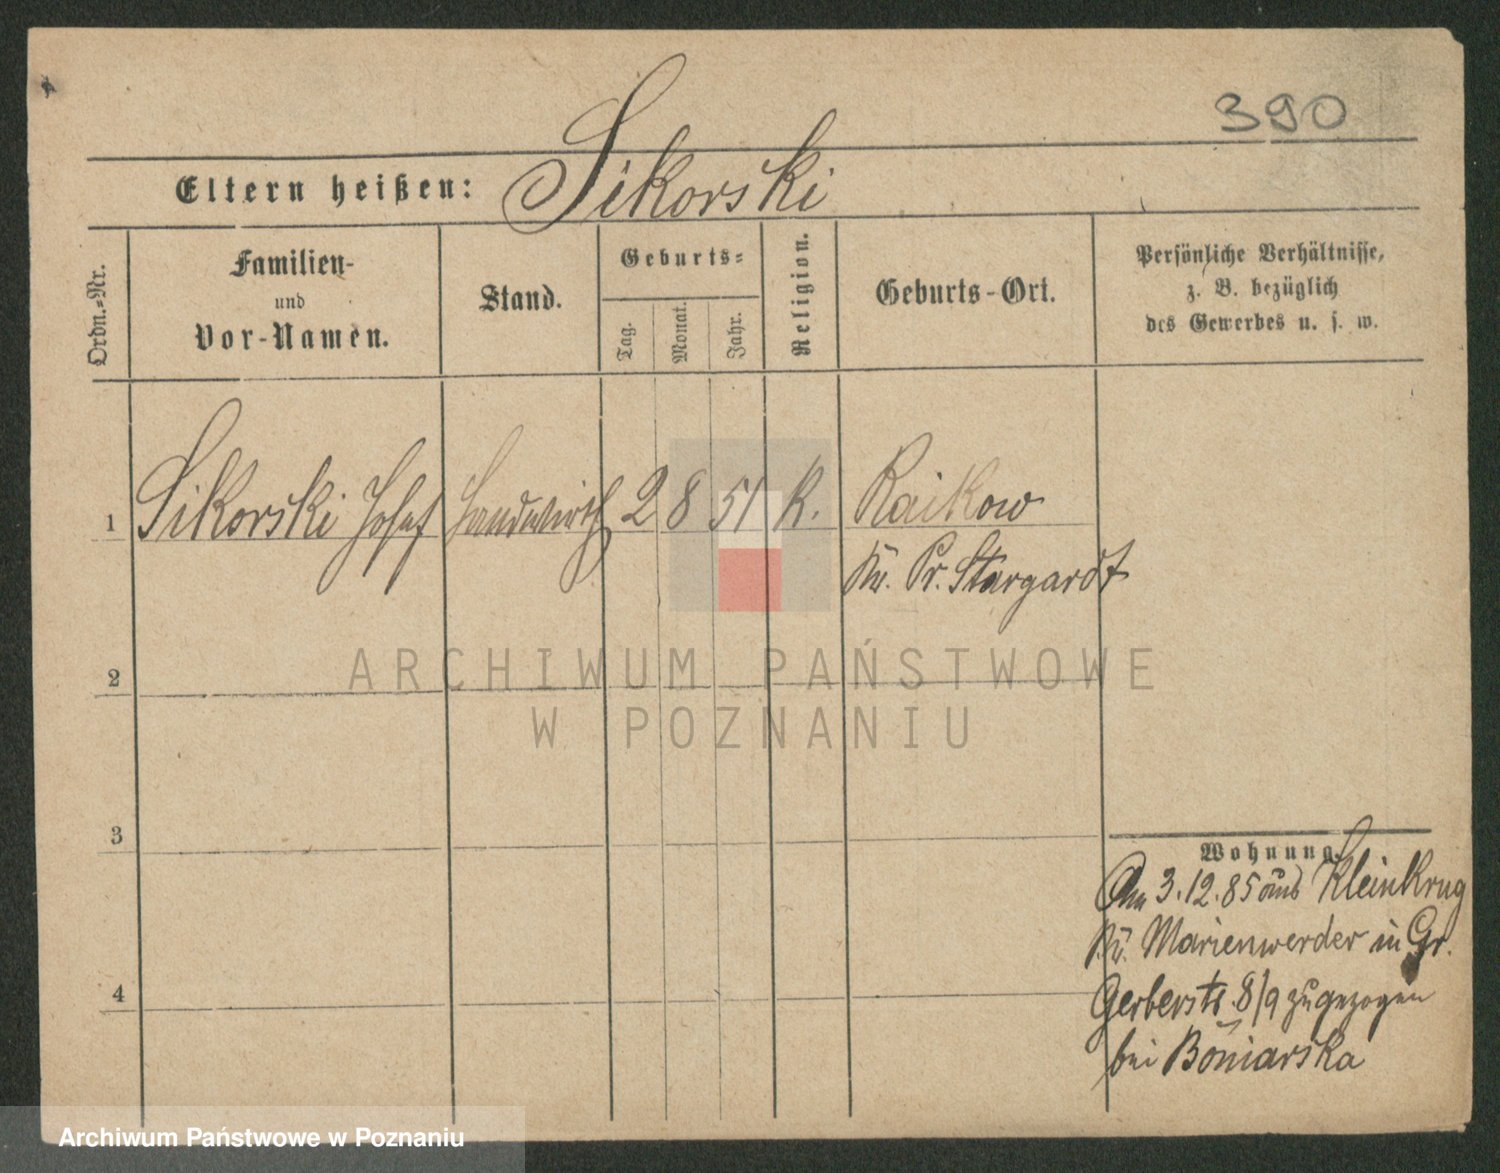 390
Eltern heißen: Sikorski
Ordn.-Nr.
Familien-
und
Vor-Namen.
Stand.
Geburts-
Tag.
Monat.
Jahr.
Religion.
Geburts-Ort.
Persönliche Verhältnisse,
z. B. bezüglich
des Gewerbes u. s. w.
1 Sikorski Josef Landwirth 2 8 51 K. Raikow
Kr. Pr. Stargardt
2
3
4
Wohnung.
Am 3.12.85 aus Kleinkrug
Kr. Marienwerder in Gr.
Gerberstr. 8/9 zugezogen
bei Boniarska
ARCHIWUM PAŃSTWOWE
W POZNANIU
Archiwum Państwowe w Poznaniu